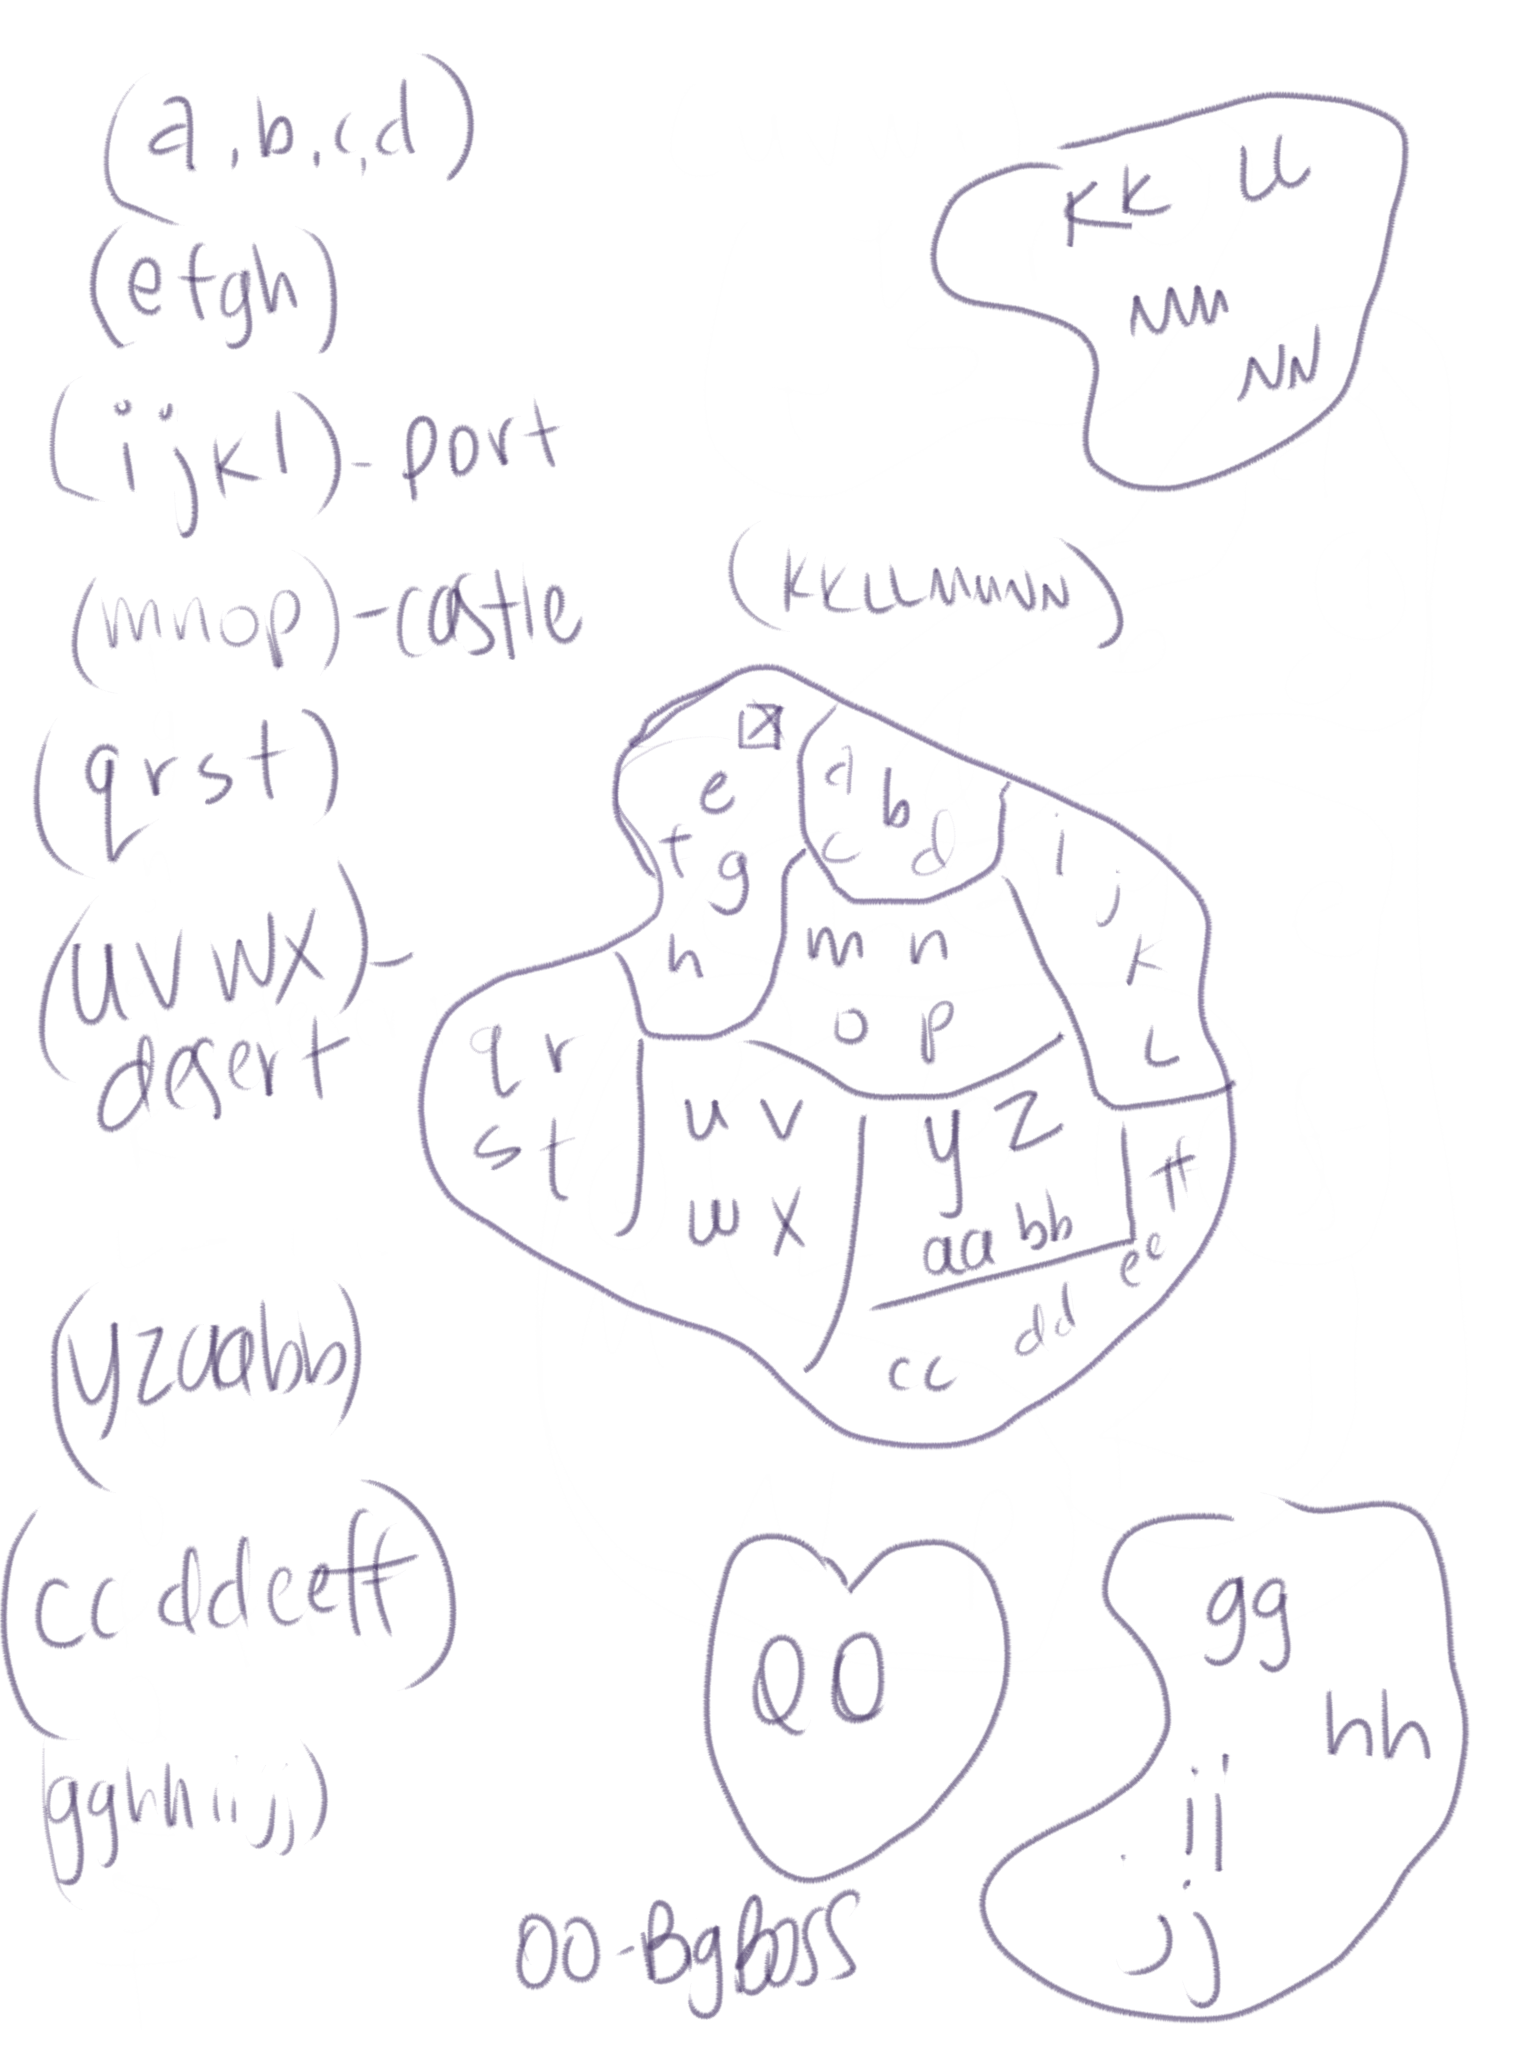 (a,b,c,d)
(efgh)
(ijkl)-port
(mnop)-castle
(qrst)
(uvwx)-
desert
(yzaabb)
(ccddeeff)
gghhiijj)
kk LL
MM
NN
(KKLLMMNN)
e
f g
h
a b
c d
i
j
k
L
m n
o p
q r
s t
u v
w x
y z
aa bb
ff
ee
dd
cc
OO
OO-BgBoss
gg
hh
ii
jj